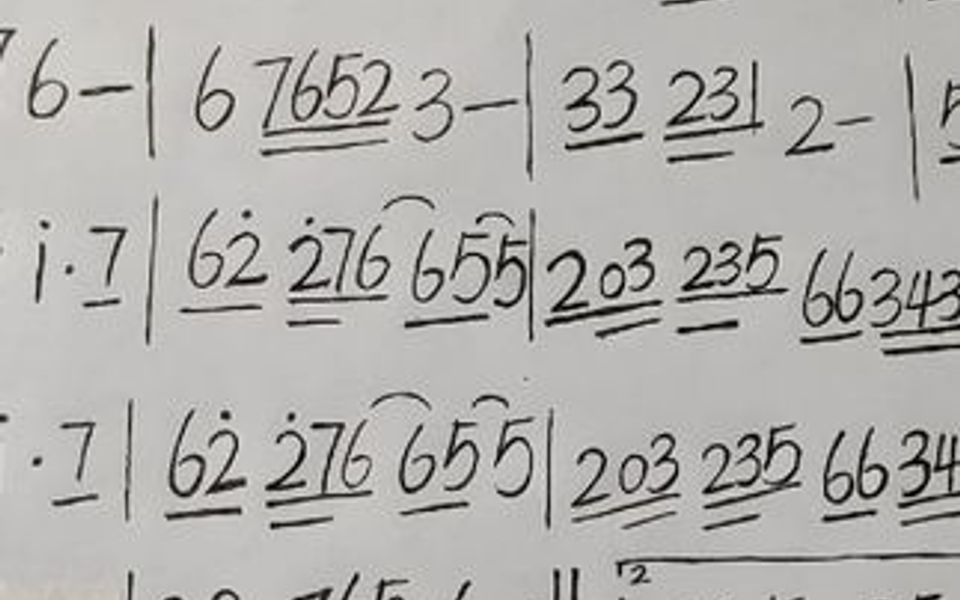 6 – | 6 7652 3 – | 33 231 2 – |
i · 7 | 62̇ 2̇76 655 | 203 235 66 343
· 7 | 62̇ 2̇76 655 | 203 235 66 34